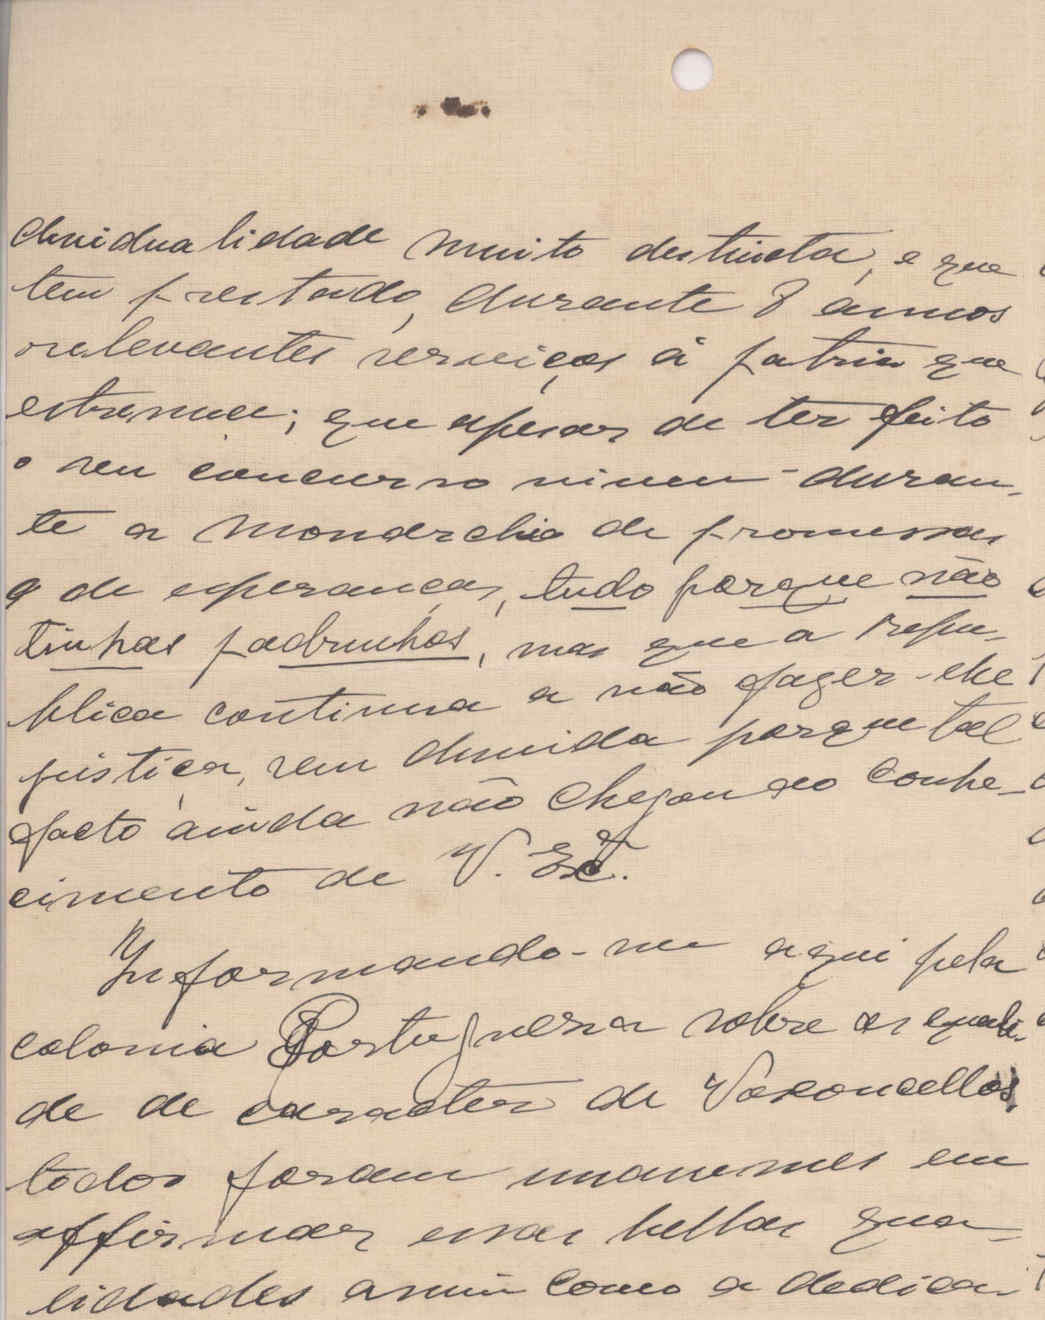 dividualidade muito destincta, e que
tem prestado, durante 8 annos
relevantes serviços á patria que
estremece; que apesar de ter feito
o seu concurso viveu duran-
te a monarchia de promessas
e de esperanças, tudo porque não
tinhas padrinhos, mas que a Repu-
blica continua a não fazer-lhe
justiça, sem duvida porque tal
facto ainda não chegou ao conhe-
cimento de V. Ex.ª
Informando-me aqui pela
colonia Portugueza sobre as quali-
de de caracter de Vasconcellos,
todos foram unanimes em
affirmar essas bellas qua-
lidades assim como a dedica-